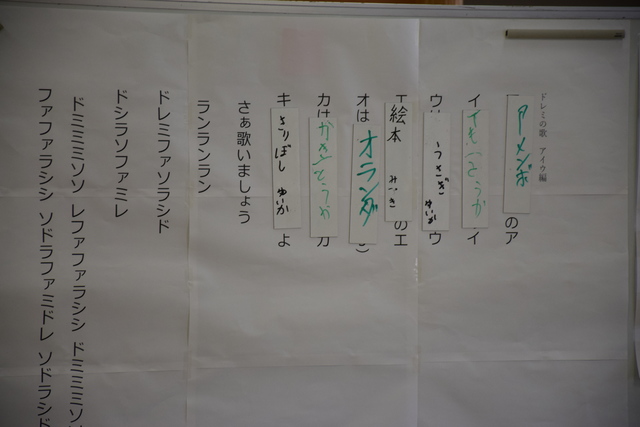 ドレミの歌 アイウ編
アメンボ のア
イ いとうか イ
ウ うさぎ ゆいか ウ
エ 絵本 みつき のエ
オは オランダ
カは かきとうか カ
キ きりぼし ゆいか よ
さぁ歌いましょう
ランランラン
ドレミファソラシド
ドシラソファミレ
ドミミミソソ レファファラシシ ドミミミソソ
ファファラシシ ソドラファミドレ ソドラシド